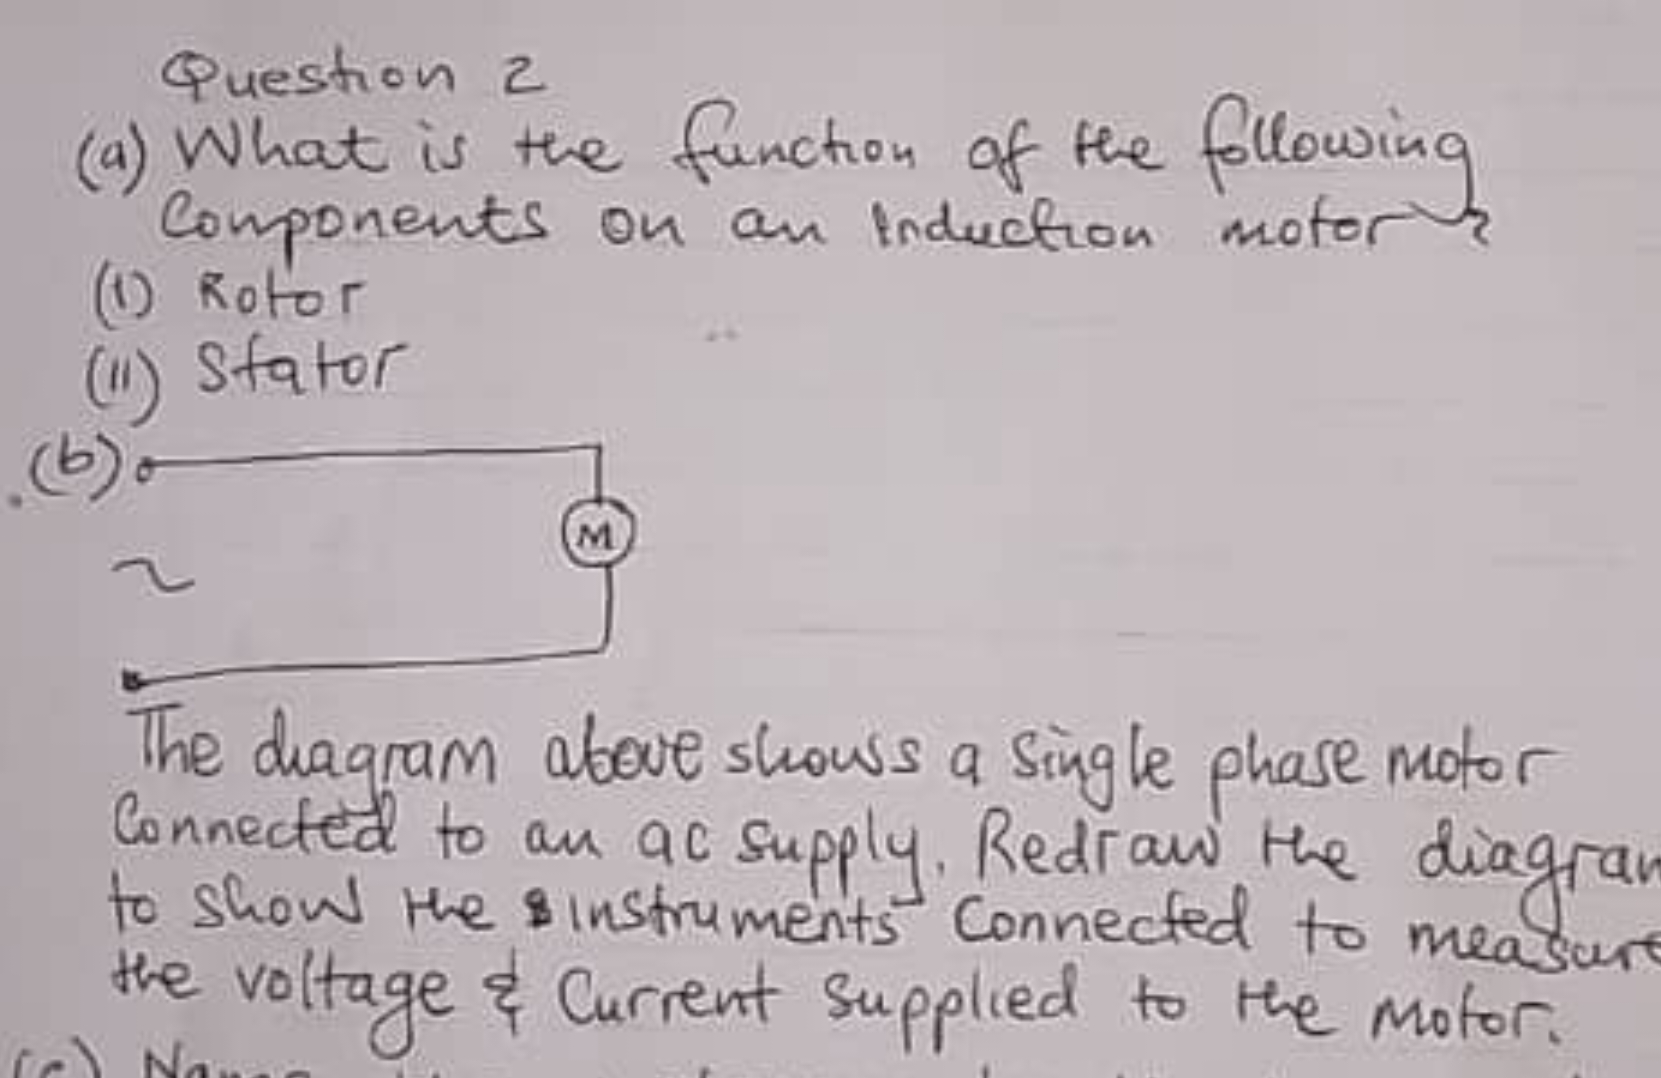 Question 2
(a) What is the function of the following
Components on an Induction motor?
(i) Rotor
(ii) Stator
(b)
M
~
The diagram above shows a single phase motor
Connected to an ac supply. Redraw the diagram
to show the instruments Connected to measure
the voltage & Current Supplied to the Motor.
(c)